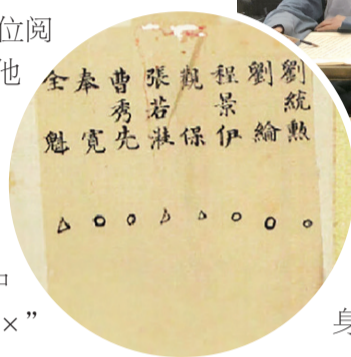 位阅
他
劉統勲 ○
劉綸 ○
程景伊 ○
觀保 △
張若溎 △
曹秀先 ○
奉寬 ○
全魁 △
×”
身